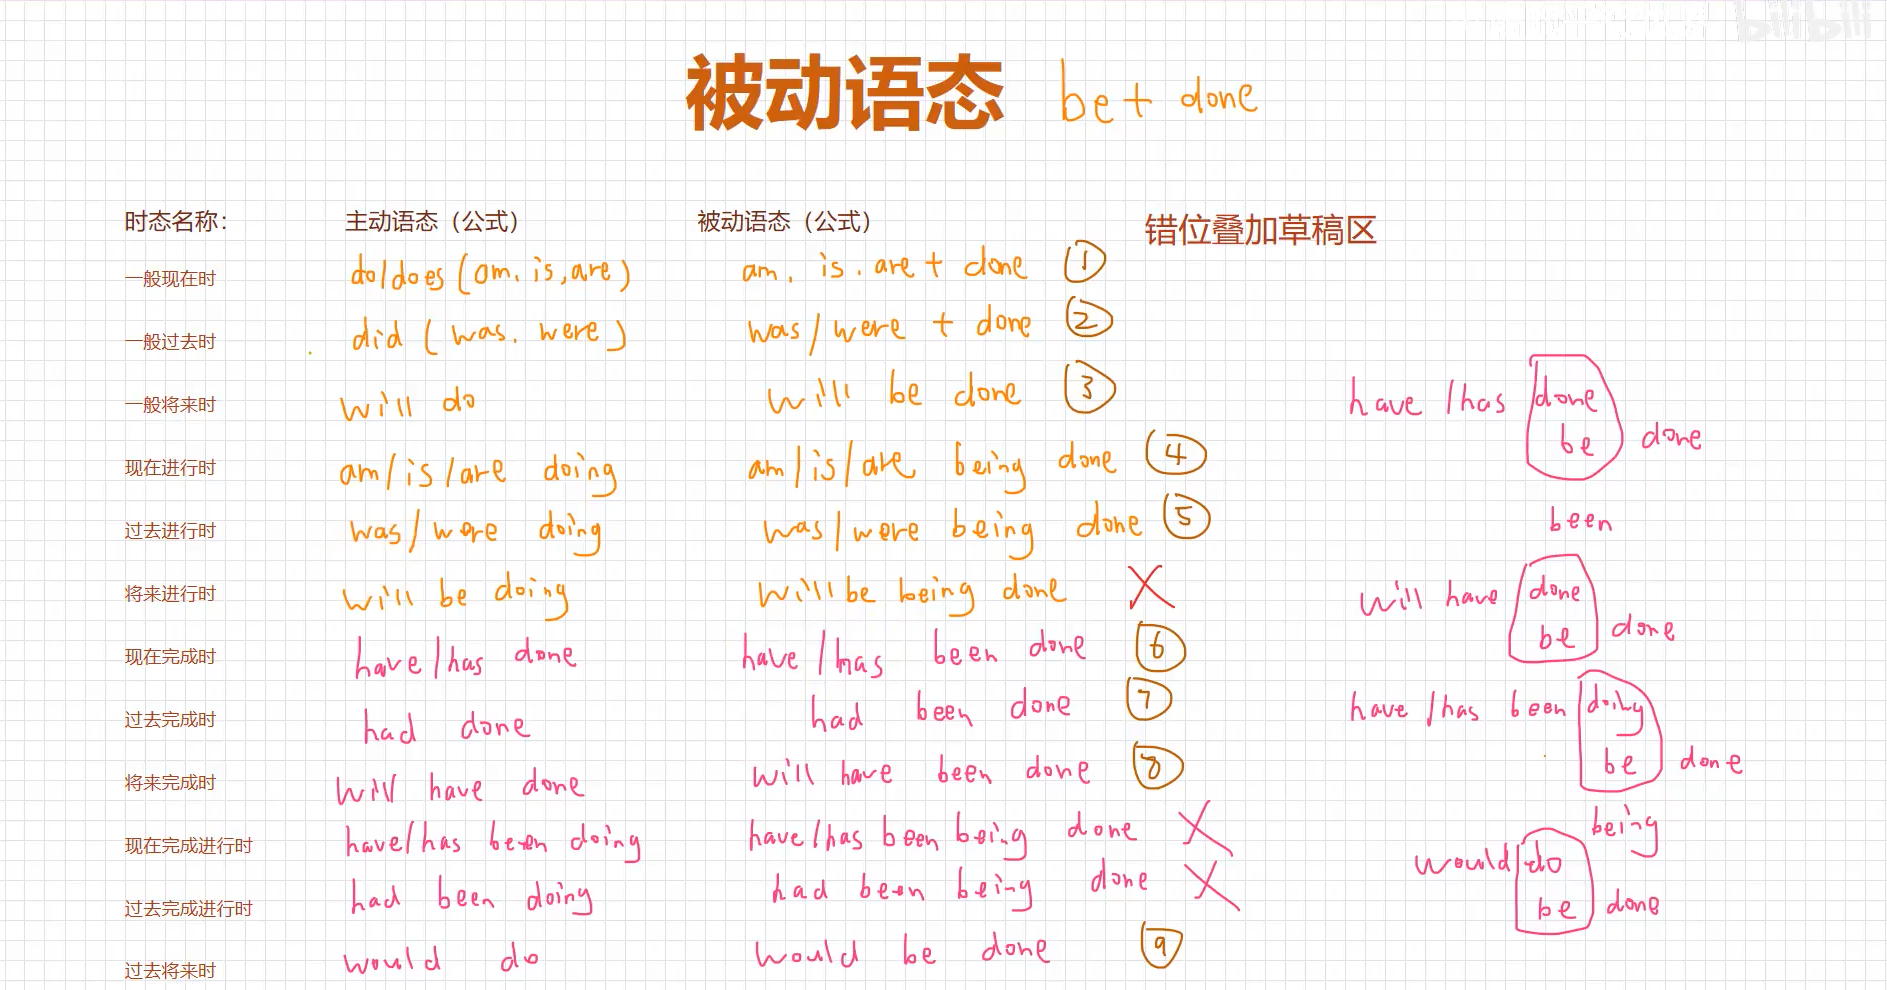 bilibili
被动语态 be + done
时态名称： 主动语态（公式） 被动语态（公式） 错位叠加草稿区
一般现在时 do/does (am. is, are) am. is. are + done ①
一般过去时 did ( was. were ) was / were + done ②
一般将来时 will do will be done ③
现在进行时 am/is/are doing am/is/are being done ④
过去进行时 was/were doing was/were being done ⑤
将来进行时 will be doing will be being done ×
现在完成时 have/has done have/has been done ⑥
过去完成时 had done had been done ⑦
将来完成时 will have done will have been done ⑧
现在完成进行时 have/has been doing have/has been being done ×
过去完成进行时 had been doing had been being done ×
过去将来时 would do would be done ⑨
have /has done
be done
been
will have done
be done
have /has been doing
be done
being
would do
be done